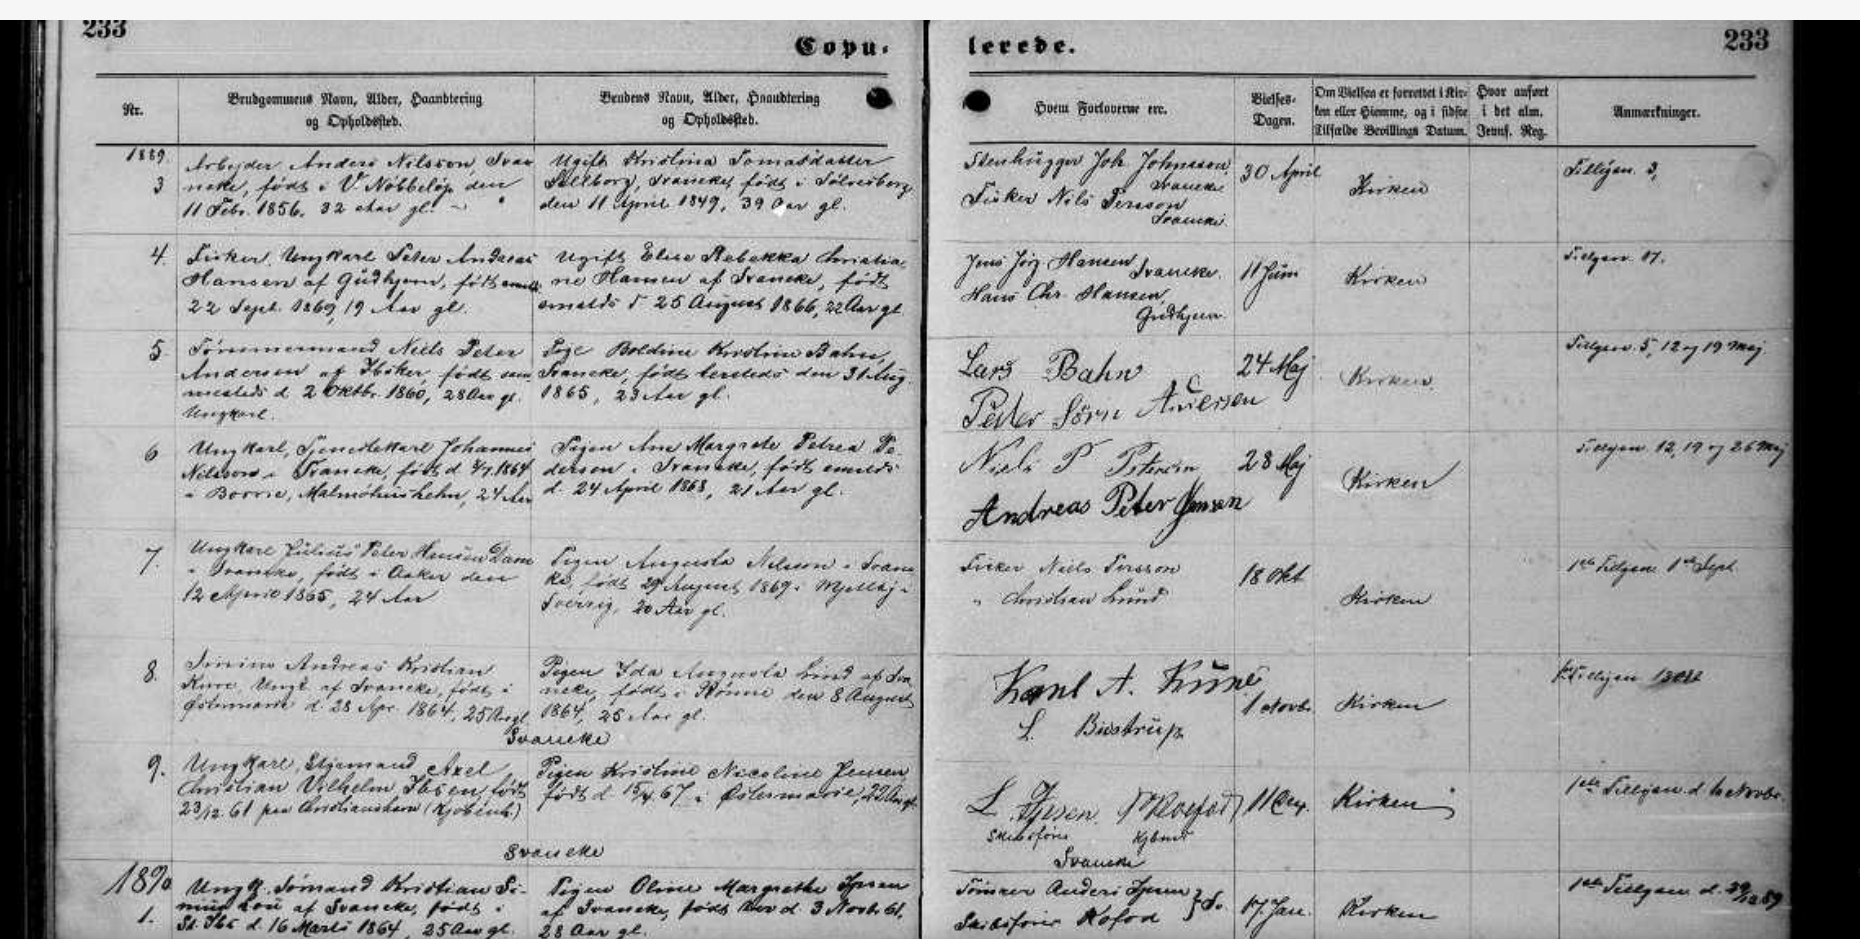 233
233
Copu-
lerede.
Nr.
Brudgommens Navn, Alder, Haandtering
og Opholdssted.
Brudens Navn, Alder, Haandtering
og Opholdssted.
Hvem Forloverne ere.
Vielses-
Dagen.
Om Vielsen er forrettet i Kir-
ken eller Hjemme, og i sidste
Tilfælde Bevillings Datum.
Hvor anført
i det alm.
Jevnf. Reg.
Anmærkninger.
1889.
3
Arbejder Anders Nilsson, Svan
neke, født i V Nöbbelöf den
11 Febr. 1856, 32 Aar gl.
Ugift Kristina Tomasdatter
Sellborg, Svaneke, født i Sölvesborg
den 11 April 1849, 39 Aar gl.
Stenhugger Joh Johnsson
Svaneke
Fisker Nils Persson
Svaneke
30 April
Kirken
Tillysn. 3,
4.
Fisker, Ungkarl Peter Andreas
Hansen af Gudhjem, født
22 Sept. 1869, 19 Aar gl.
Ugift Elise Rebekka Christia-
ne Hansen af Svaneke, født
25 August 1866, 22 Aar gl
Jens Jörg Hansen
Svaneke.
Hans Chr. Hansen,
Gudhjem
11
Kirken
5.
Tömmermand Niels Peter
Andersen af Ibsker, født sam
mesteds d. 2 Oktbr. 1860, 28 Aar gl.
Ungkarl.
Pige Boldine Kristine Bahn,
Svaneke, født hersteds den 31 Aug.
1865, 23 Aar gl.
Lars Bahn
Peder Sörn Andersen
24 Maj
Kirken.
Tillysn. 5, 12 og 19 Maj
6
Ungkarl, Tjenestekarl Johannes
Nilsson i Svaneke, født d. 1864
i Borrie, Malmöhuslehn, 24 Aar
Pigen Ane Margrete Petrea Pe-
dersen i Svaneke, født
d. 24 April 1868, 21 Aar gl.
Niels P Petersen
Andreas Peter Jensen
28 Maj
Kirken
Tillysn. 12, 19 og 26 Maj
7.
Ungkarl Julius Peter Hansen Dam
i Svaneke, født i Aaker den
12 April 1865, 24 Aar
Pigen Augusta Nilsson i Svane
ke, født 29 August 1869 i
Sverrig, 20 Aar gl.
Fisker Niels Persson
" Christian Lund
18 Okt
Kirken
1ste Tillysn. 1 Sept.
8.
Andreas Kristian
Kure, Ungk. af Svaneke, født i
Østermarie d. 28 Apr. 1864, 25 Aar gl.
Pigen Ida Augusta Lind af Sva
neke, født i Rønne den 8 August
1864, 25 Aar gl.
Karl A. Kure
L. Bistrup
1 Novbr.
Kirken
Svaneke
9.
Ungkarl, Axel
Christian Vilhelm Ibsen, født
23/12. 61 paa Christianshavn (Kjøbenh.)
Pigen Kristine Nicoline Jensen
født d. 15/4. 67 i Østermarie, 22 Aar gl.
L. Ipsen
Skibsfører
Kjbmd
Svaneke
Kirken
1ste Tillysn. d. Novbr.
Svaneke
1890
1.
Ungk. Sömand Kristian Si-
af Svaneke, født i
St. Ibs d. 16 Marts 1864, 25 Aar gl.
Pigen Oline Margrethe Ipsen
af Svaneke, født her d. 3 Novb. 61,
28 Aar gl.
Tömrer Anders Ipsen
Skibsfører Kofod
17. Jan.
Kirken
1ste Tillysn. d. 29/12 89